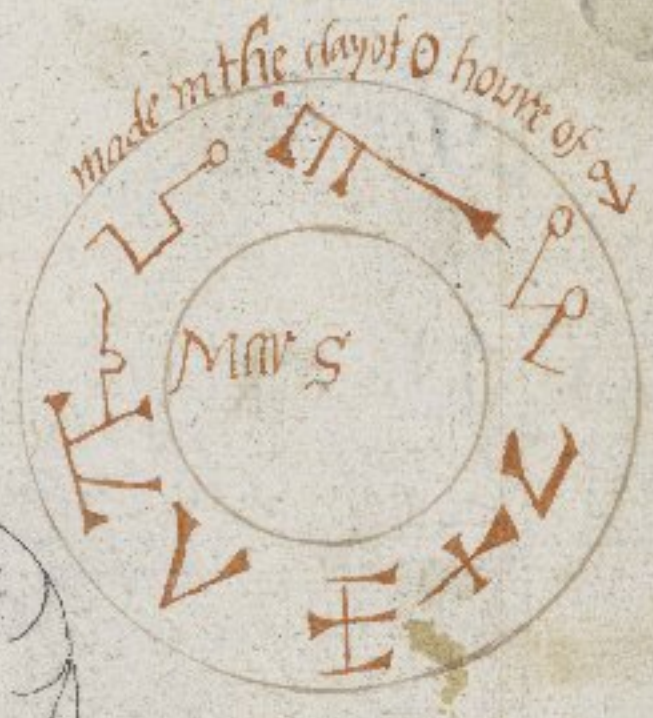 made in the day of ☉ houre of ♂
Mars